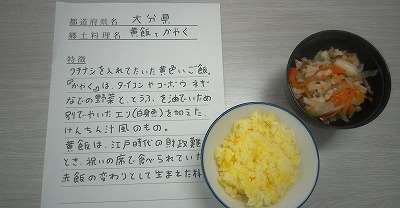 都道府県名 大分県
郷土料理名 黄飯とかやく
特徴
クチナシを入れてたいた黄色いご飯。
『かやく』は、ダイコンやゴボウ、ネギ
などの野菜と、とうふを油でいため
別でやいたエソ(白身魚)を加えた
けんちん汁風のもの。
黄飯は、江戸時代の財政難
とき、祝いの席で食べられていた
赤飯の変わりとして生まれた料